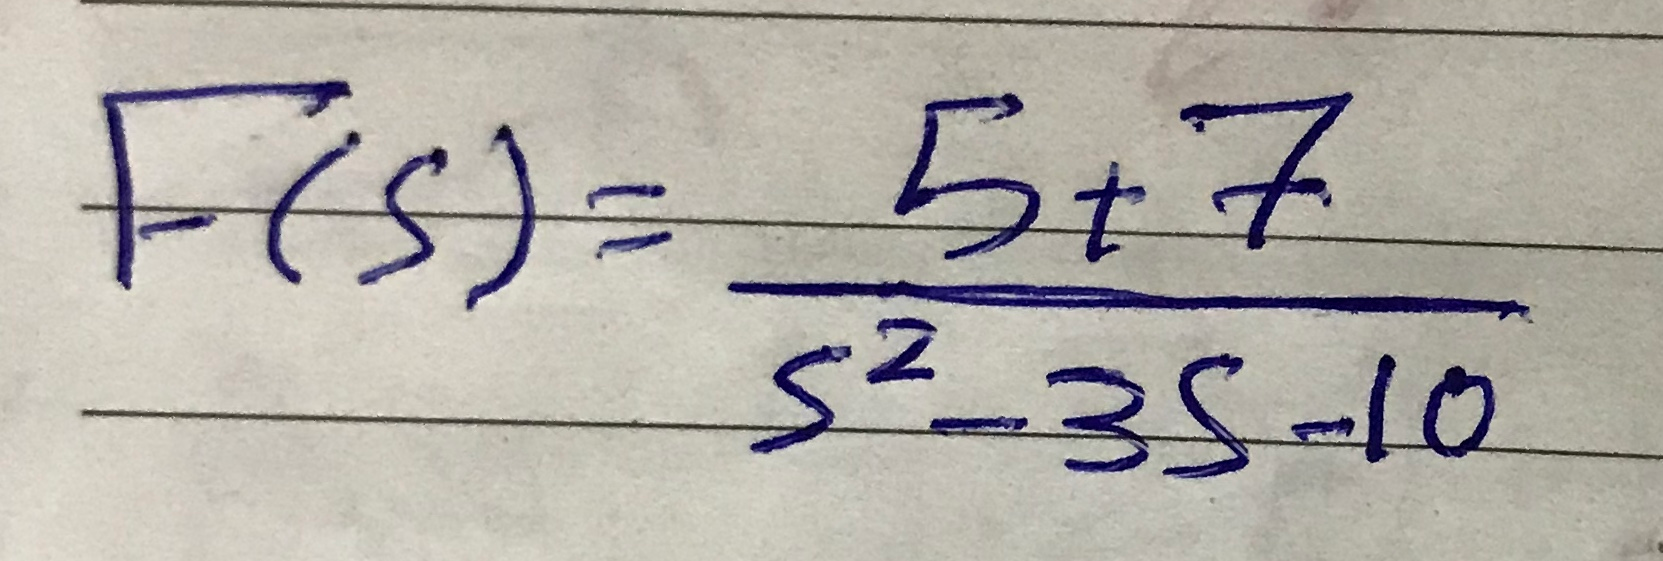 F(s) = \frac{5+7}{s^2-3s-10}